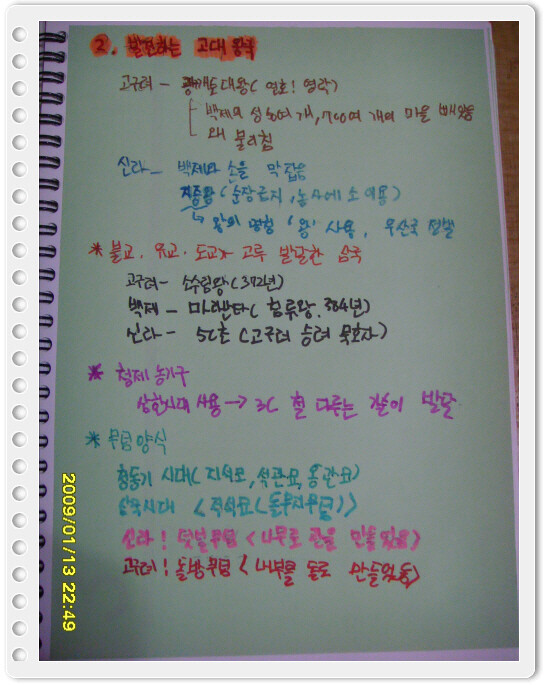 2. 발전하는 고대 왕국
고구려 - 광개토대왕 (연호! 영락)
백제의 성 50여 개, 700여 개의 마을 빼앗음
왜 물리침
신라 - 백제와 손을 막잡음
지증왕 (순장금지, 농사에 소 이용)
↳ 왕의 명칭 '왕' 사용, 우산국 정벌
* 불교·유교·도교가 고루 발달한 삼국
고구려 - 소수림왕 (372년)
백제 - 마라난타 (침류왕, 384년)
신라 - 5C초 (고구려 승려 묵호자)
* 철제 농기구
사용 → 3C 철 다루는 발달
* 무덤양식
청동기 시대 (지석묘, 석관묘, 옹관묘)
삼국시대 <적석묘(돌무지무덤)>
신라! 덧널무덤 <나무로 관을 만들었음>
고구려! 돌방무덤 <내부를 돌로 만들었음>
2009/01/13 22:49